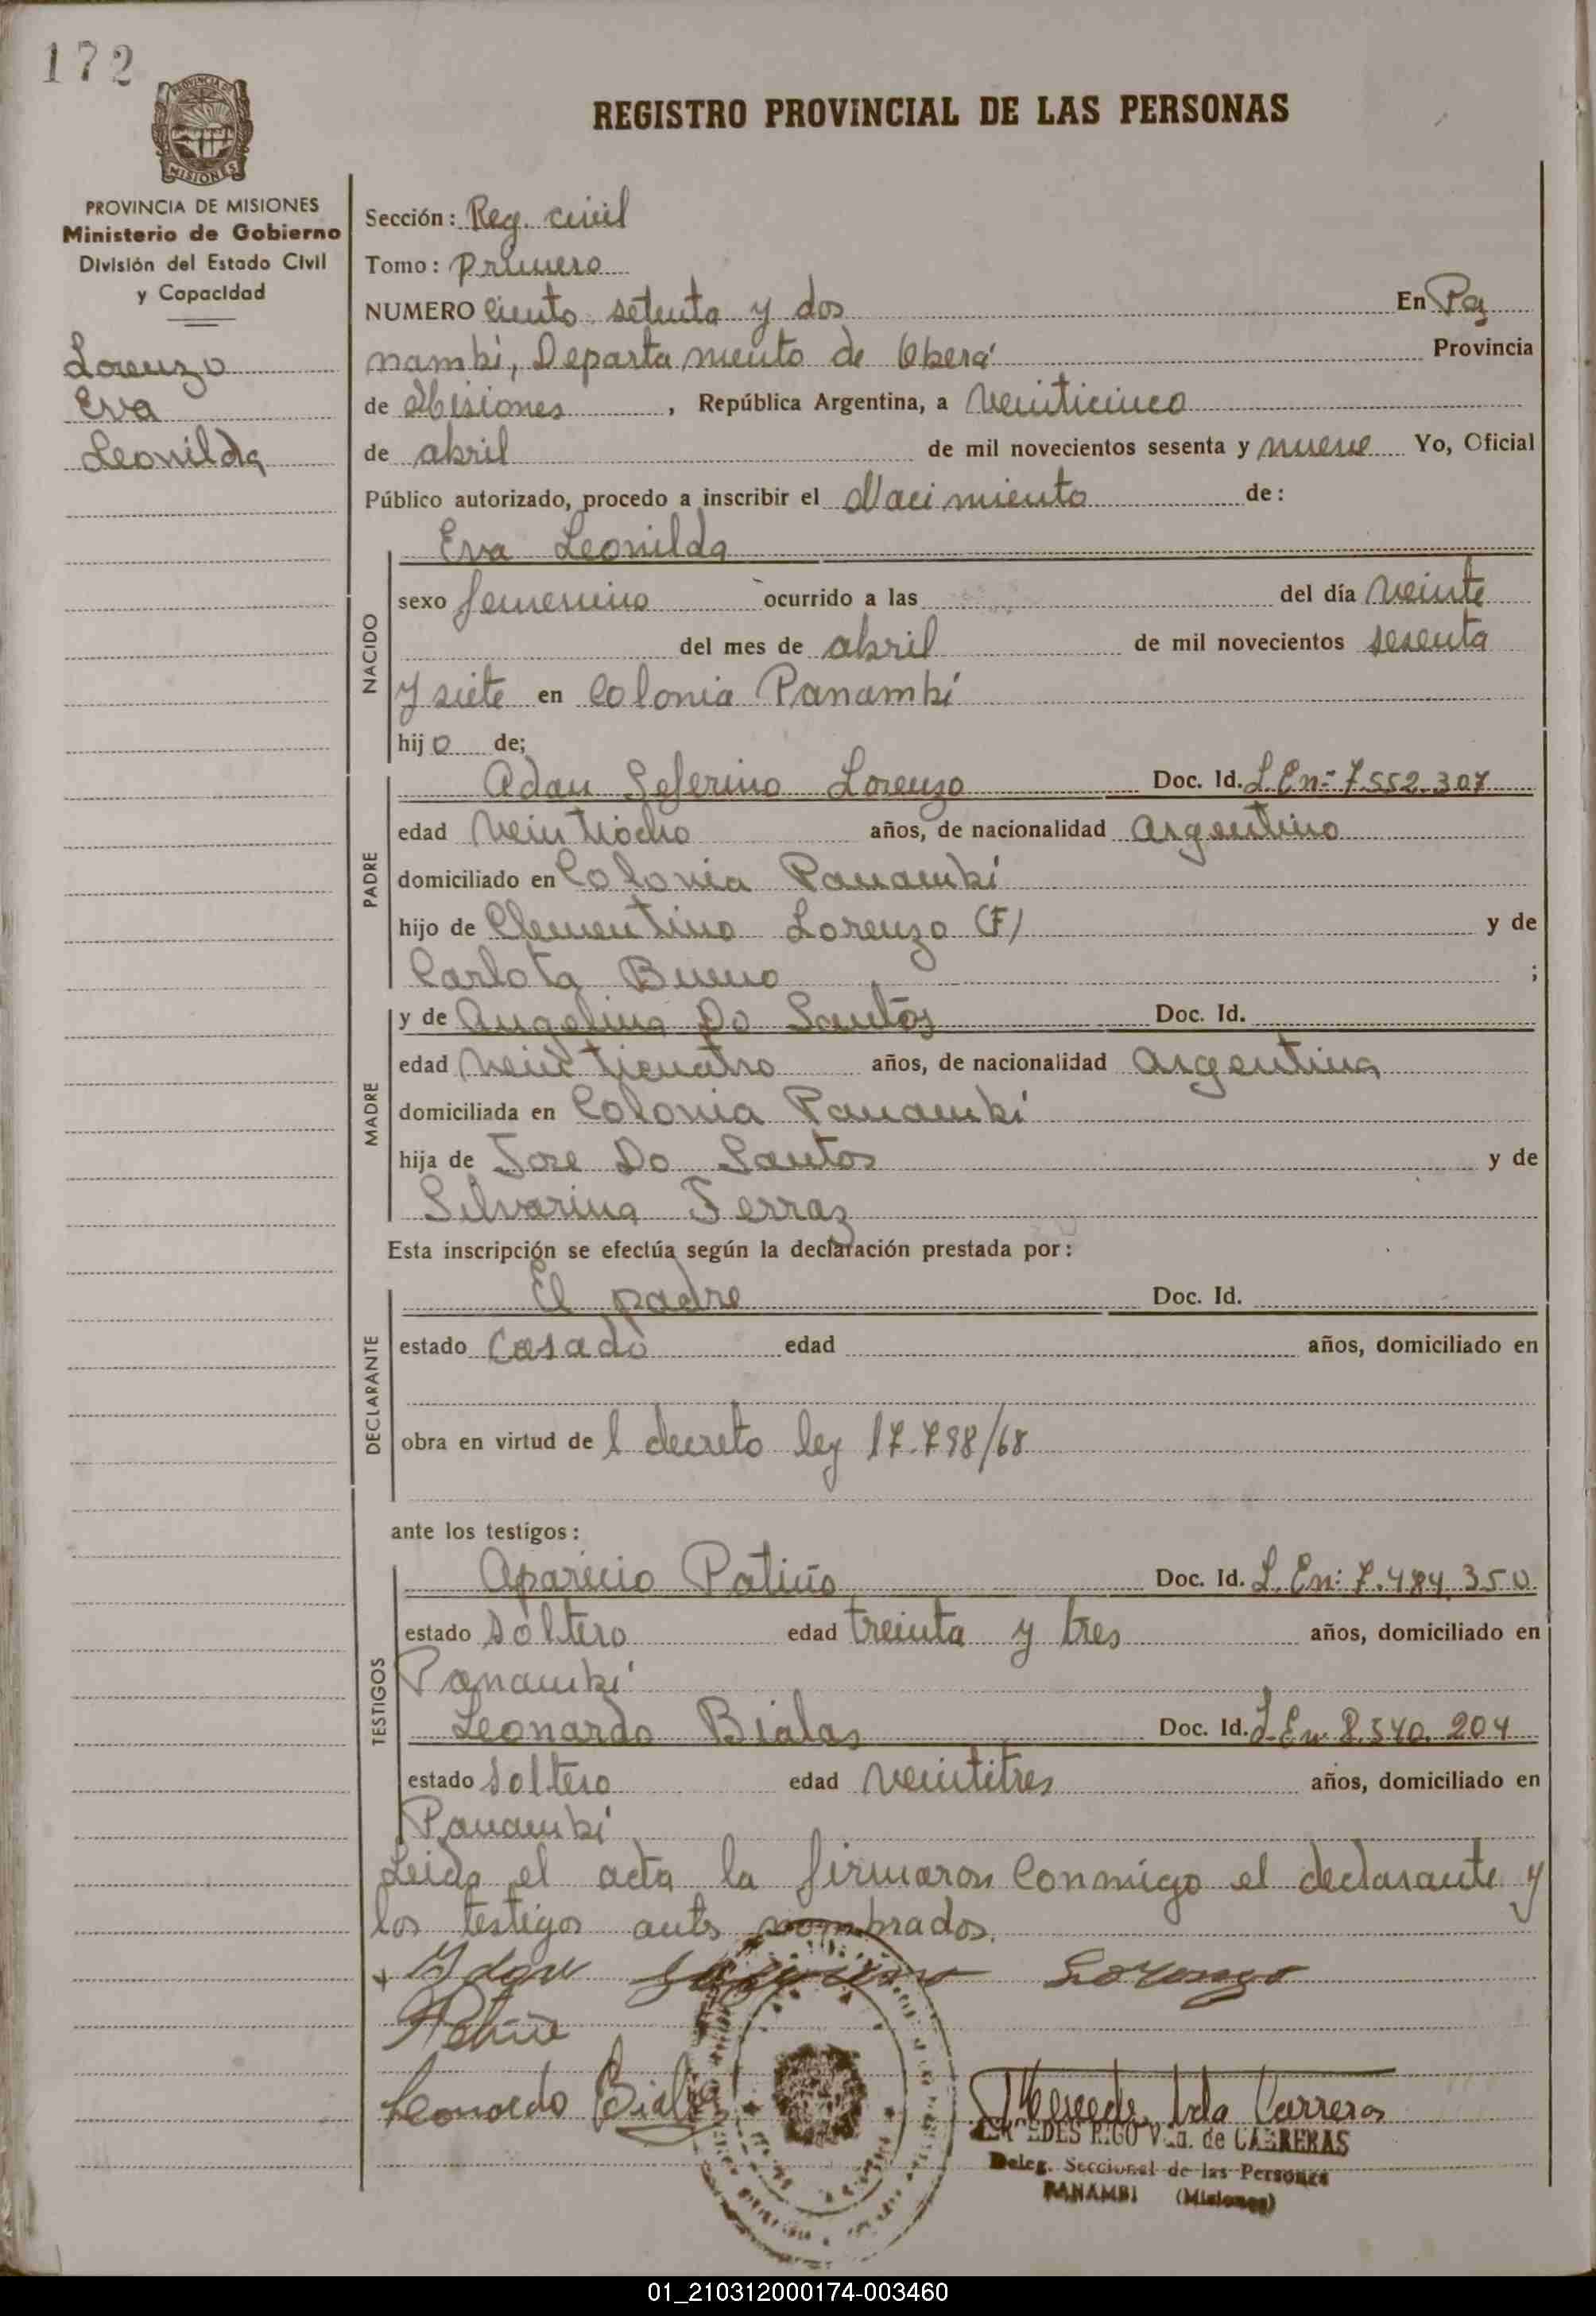 172
PROVINCIA DE MISIONES
Ministerio de Gobierno
División del Estado Civil
y Capacidad
Lorenzo
Eva
Leonilda
REGISTRO PROVINCIAL DE LAS PERSONAS
Sección: Reg. civil
Tomo: Primero
NUMERO Ciento setenta y dos En Pa
nambí, Departamento de Oberá Provincia
de Misiones, República Argentina, a veinticinco
de abril de mil novecientos sesenta y nueve Yo, Oficial
Público autorizado, procedo a inscribir el Nacimiento de:
Eva Leonilda
NACIDO
sexo femenino ocurrido a las del día veinte
del mes de abril de mil novecientos sesenta
y siete en Colonia Panambí
hijo de;
PADRE
Adan Seferino Lorenzo Doc. Id. L.En: 7.552.307
edad veintiocho años, de nacionalidad argentino
domiciliado en Colonia Panambí
hijo de Clementino Lorenzo (F) y de
Carlota Bueno ;
MADRE
y de Angelina Do Santos Doc. Id.
edad veinticuatro años, de nacionalidad argentina
domiciliada en Colonia Panambí
hija de Jose Do Santos y de
Silvarina Ferraz
Esta inscripción se efectúa según la declaración prestada por:
DECLARANTE
El padre Doc. Id.
estado casado edad años, domiciliado en
obra en virtud de l decreto ley 17.798/68
ante los testigos:
TESTIGOS
Aparicio Patiño Doc. Id. L.En: 7.484.350
estado soltero edad treinta y tres años, domiciliado en
Panambí
Leonardo Bialas Doc. Id. L.En 8.540.204
estado soltero edad veintitres años, domiciliado en
Panambí
Leida el acta la firmaron conmigo el declarante y
los testigos ants nombrados.
Adan Seferino Lorenzo
Patiño
Leonardo Bialas
Mercedes Vda Carreras
MERCEDES RIGO Vda. de CARRERAS
Deleg. Seccional de las Personas
PANAMBI (Misiones)
01_210312000174-003460